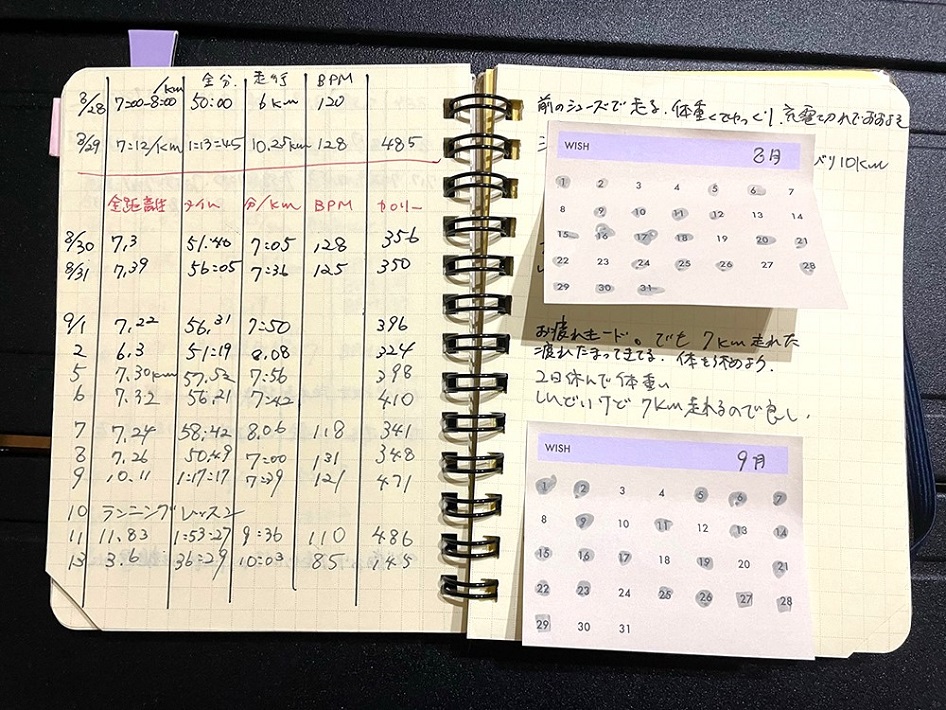 /km 全分 走行 BPM
8/28 7:00-8:00 50:00 6km 120
8/29 7:12/km 1:13:45 10.25km 128 485
全距離 タイム 分/km BPM カロリー
8/30 7.3 51.40 7:05 128 356
8/31 7.39 56:05 7:36 125 350
9/1 7.22 56.31 7:50 396
2 6.3 51:19 8.08 324
5 7.30km 57.52 7:56 398
6 7.32 56.21 7:42 410
7 7.24 58:42 8.06 118 341
8 7.26 50.49 7:00 131 348
9 10.11 1:17:17 7:39 121 471
10 ランニングレッスン
11 11.83 1:53:27 9:36 110 486
13 3.6 36:29 10:03 85 145
前のシューズで走る。体重くてゆっくり
10km
WISH 8月
1 2 3 4 5 6 7
8 9 10 11 12 13 14
15 16 17 18 19 20 21
22 23 24 25 26 27 28
29 30 31
お疲れモード。でも7km走れた
疲れたまってきてる。体を休めよう。
2日休んで体重い
しんどいけど7km走れるので良し。
WISH 9月
1 2 3 4 5 6 7
8 9 10 11 12 13 14
15 16 17 18 19 20 21
22 23 24 25 26 27 28
29 30 31